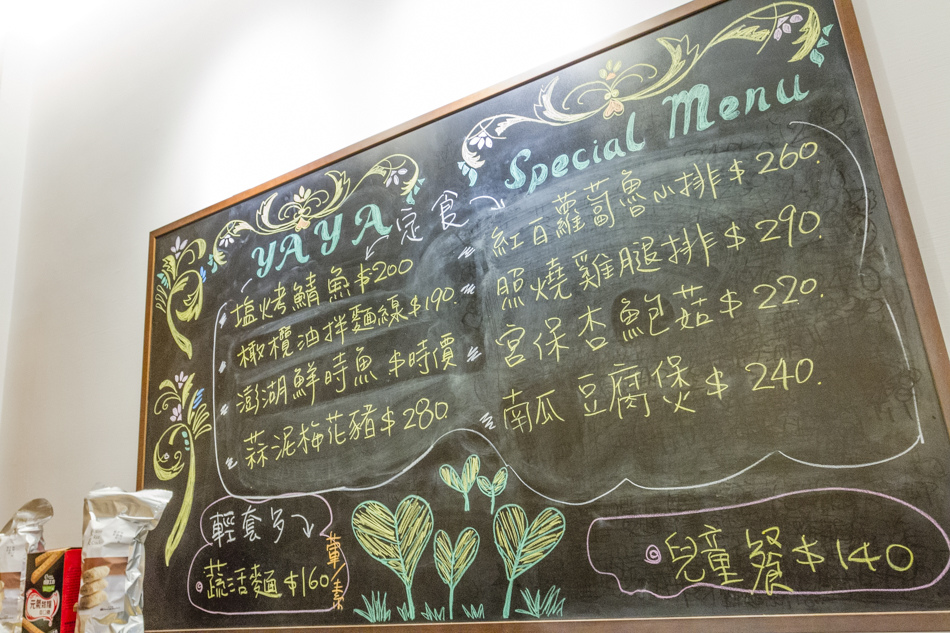 Special Menu
YAYA 定食
塩烤鯖魚$200
橄欖油拌麵線$190.
澎湖鮮時魚 $時價
蒜泥梅花豬$280
紅白蘿蔔魚小排$260.
照燒雞腿排$290.
宮保杏鮑菇$220.
南瓜豆腐煲$240.
輕套多
蔬活麵$160
葷/素
兒童餐$140